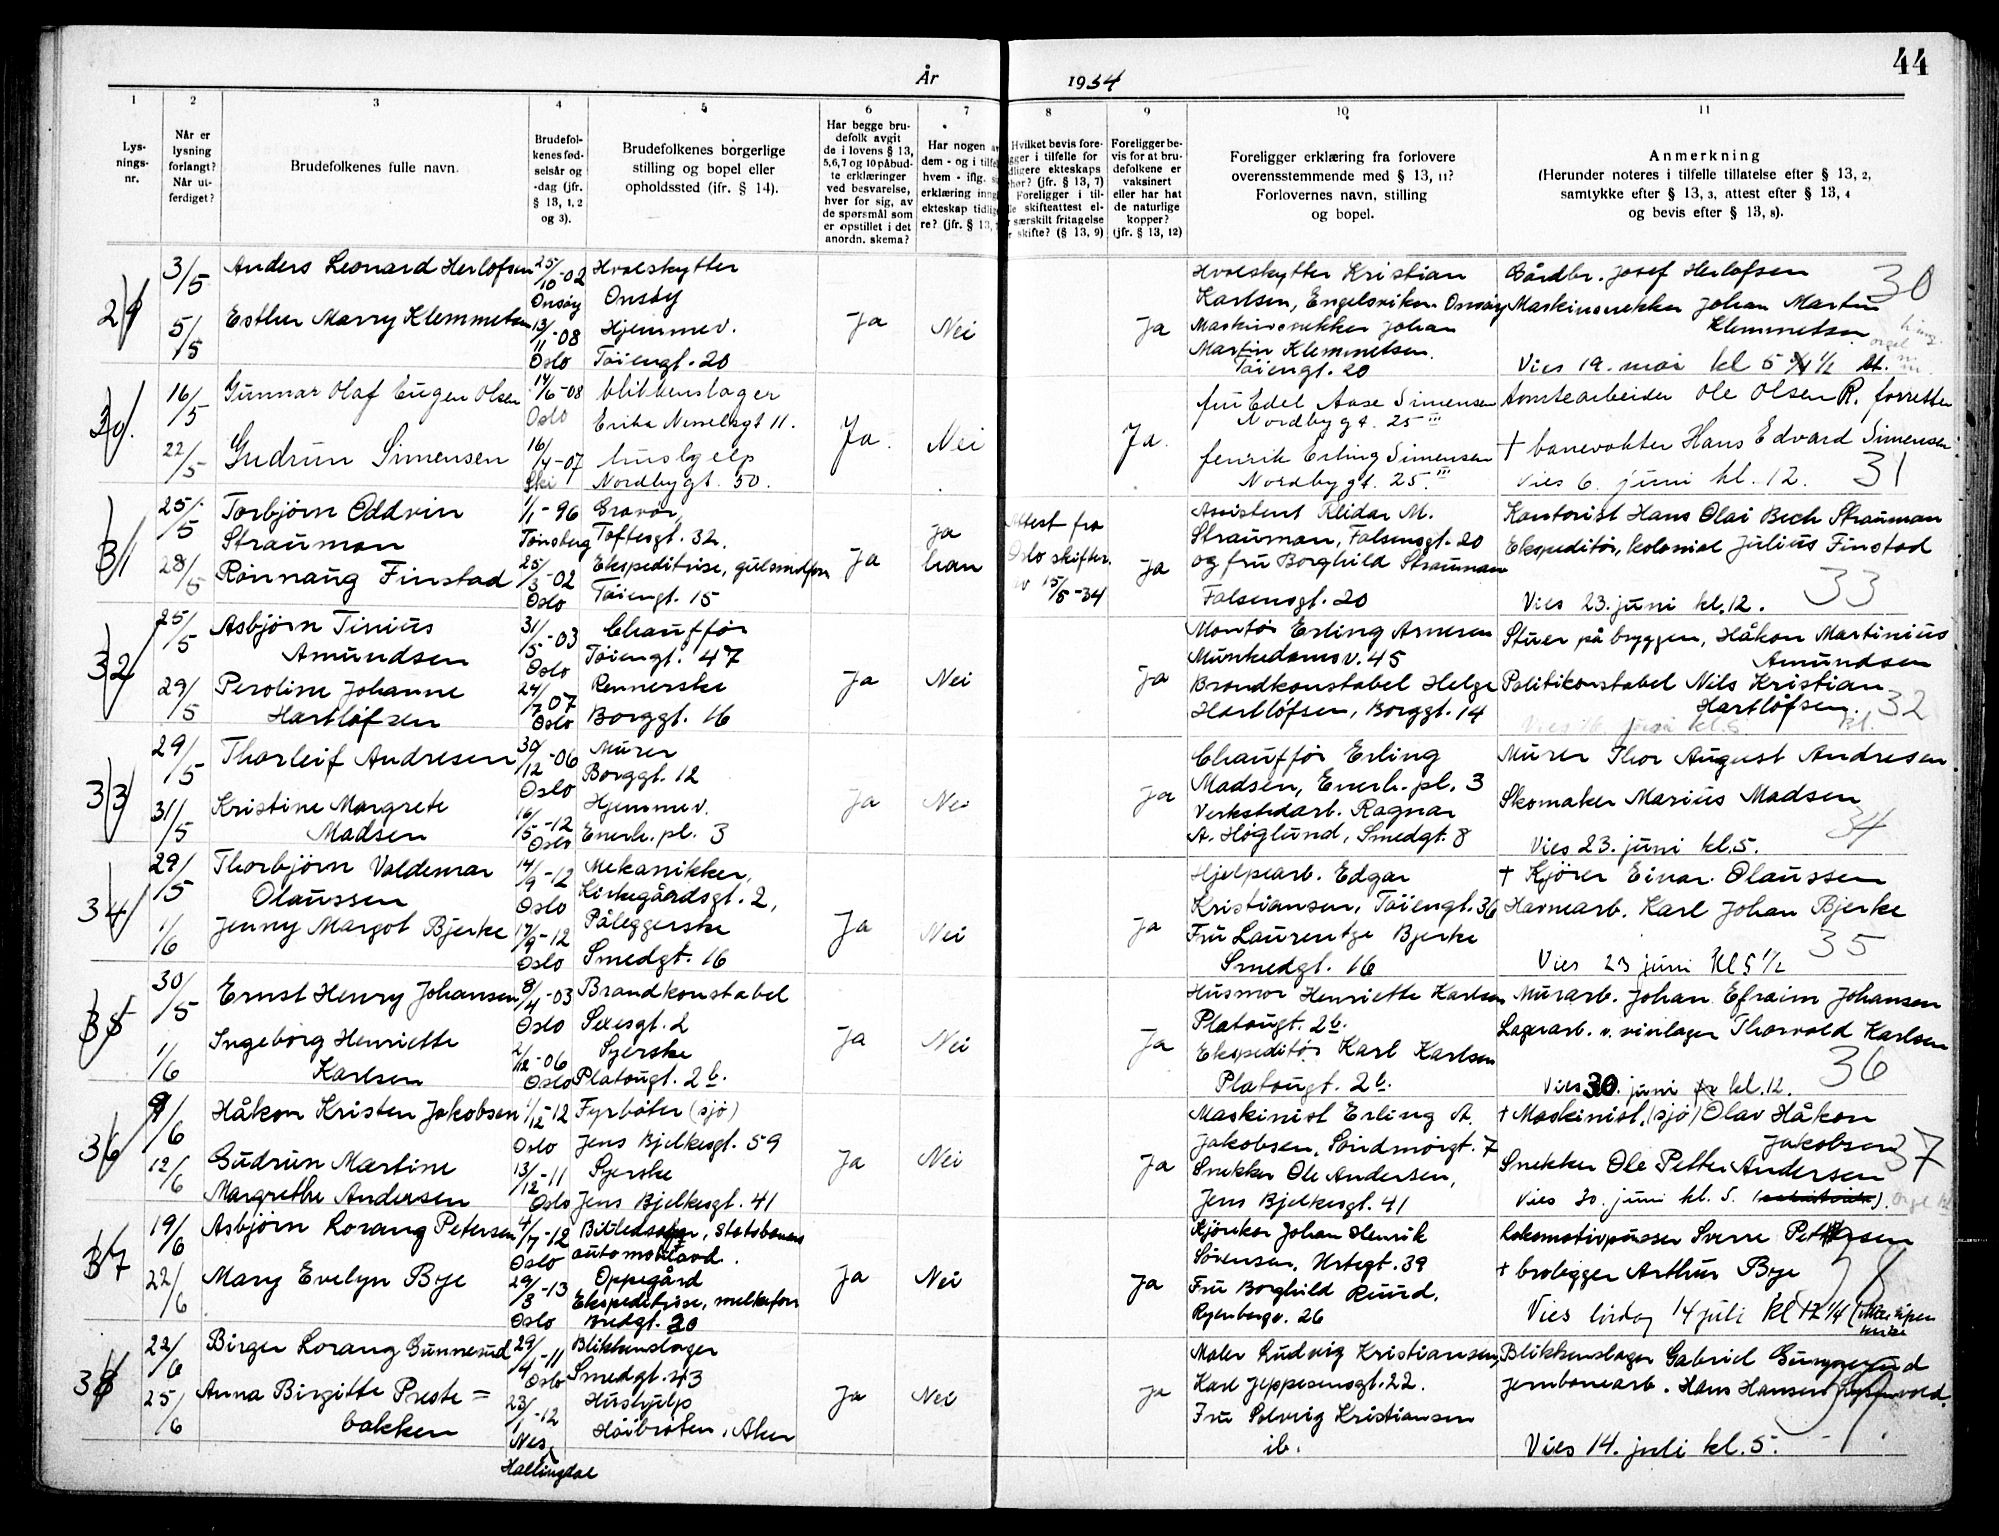 44
År 1934
1
Lys-
nings-
nr.
2
Når er
lysning
forlangt?
Når ut-
ferdiget?
3
Brudefolkenes fulle navn.
4
Brudefol-
kenes fød-
selsår og
-dag (jfr.
§ 13, 1, 2
og 3).
5
Brudefolkenes borgerlige
stilling og bopel eller
opholdssted (ifr. § 14).
6
Har begge bru-
defolk avgit
de i lovens § 13,
5,6,7 og 10 påbud-
te erklæringer
ved besvarelse,
hver for sig, av
de spørsmål som
er opstillet i det
anordn. skema?
7
Har nogen av
dem - og i tilfe
hvem - iflg.
erklæring inng
ekteskap tidlig
re? (jfr. § 13,
8
Hvilket bevis fore-
gger i tilfelle for
dligere ekteskaps
hør? (jfr. § 13, 7)
Foreligger i til-
le skifteattest el-
særskilt fritagelse
skifte? (§ 13, 9)
9
Foreligger be-
vis for at bru-
defolkene er
vaksinert
eller har hat
de naturlige
kopper?
(jfr. § 13, 12)
10
Foreligger erklæring fra forlovere
overensstemmende med § 13, 11?
Forlovernes navn, stilling
og bopel.
11
Anmerkning
(Herunder noteres i tilfelle tillatelse efter § 13, 2,
samtykke efter § 13, 3, attest efter § 13, 4
og bevis efter § 13, 8).
29
3/5
5/5
Anders Leonard Herlofsen
Esther Marry Klemmetsen
25/10-02
Onsøy
13/11-08
Oslo
Hvalskytter
Onsøy
Hjemmev.
Tøiengt. 20
Ja
Nei
Ja
Hvalskytter Kristian
Karlsen, Engelsviken. Onsøy
Maskinsnekker Johan
Martin Klemmetsen.
Tøiengt. 20
Gårdbr. Josef Herlofsen
30
Maskinsnekker Johan Martin
Klemmetsen
Vies 19. mai kl 5 1/2
30
16/5
22/5
Gunnar Olaf Eugen Olsen
Gudrun Simensen
14/6-08
Oslo
16/4-07
Ski
blikkenslager
Erika Nisselsgt 11.
husbyelp
Nordbygt. 50.
Ja.
Nei
Ja.
fru Edel Aase Simensen
Nordbygt. 25 III
fenrik Erling Simensen
Nordbygt. 25. III
Tomtearbeider Ole Olsen R. forretter
+ banevokter Hans Edvard Simensen
Vies 6. juni kl. 12.
31
31
25/5
28/5
Torbjørn Oddvin
Strauman
Rønnaug Finstad
1/1-96
Tønsberg
25/3-02
Oslo
Gravør,
Toftesgt. 32.
Ekspeditrise, gulsmedforr
Tøiengt. 15
Ja
Ja
han
Attest fra
Oslo skifter.
av 15/5-34
Ja
Assistent Reidar M.
Strauman, Falsensgt. 20
og fru Borghild Strauman
Falsensgt. 20
Kontorist Hans Olai Bech Strauman
Ekspeditør, kolonial Julius Finstad
Vies 23. juni kl. 12.
33
32
25/5
29/5
Asbjørn Tinius
Amundsen
Peroline Johanne
Hartløfsen
31/5-03
Oslo
24/7 07
Oslo
Chauffør
Tøiengt. 47
Rennerske
Borggt. 16
Ja
Nei
Ja
Montør Erling Arnesen
Munkedamsv. 45
Brandkonstabel Helge
Hartløfsen, Borggt. 14
Stuer på bryggen, Håkon Martinius
Amundsen
Politikonstabel Nils Kristian
Hartløfsen.
32
33
29/5
31/5
Thorleif Andresen
Kristine Margrete
Madsen
30/12-06
Oslo
16/5-12
Oslo
Murer
Borggt. 12
Hjemmev.
Enerh. pl. 3
Ja
Nei
Ja
Chauffør Erling
Madsen, Enerh. pl. 3
Verkstedarb. Ragnar
A. Høglund, Smedgt. 8
Murer Thor August Andresen
Skomaker Marius Madsen
34
Vies 23. juni kl. 5.
34
29/5
1/6
Thorbjørn Valdemar
Olaussen
Jenny Margot Bjerke
14/9-12
Oslo
17/9-12
Oslo
Mekanikker,
Kirkegårdsgt. 2,
Påleggerske
Smedgt. 16
Ja
Nei
Ja
Hjelpearb. Edgar
Kristiansen, Tøiengt. 36
Fru Laurentze Bjerke
Smedgt. 16
+ Kjører Einar Olaussen
Havnearb. Karl Johan Bjerke
35
Vies 23 juni Kl 5 1/2
35
30/5
1/6
Ernst Henry Johansen
Ingeborg Henriette
Karlsen
8/4-03
Oslo
2/12-06
Oslo
Brandkonstabel
Sexesgt. 2
Syerske
Platougt. 2 b.
Ja
Nei
Ja
Husmor Henriette Karlsen
Platougt. 2b.
Ekspeditør Karl Karlsen
Platougt. 2 b.
Murarb. Johan Efraim Johansen
Lagerarb. v. vinlager Thorvald Karlsen
36
Vies 30. juni kl. 12.
36
9/6
12/6
Håkon Kristen Jakobsen
Gudrun Martine
Margrethe Andersen
1/12-12
Oslo
13/12-11
Oslo
Fyrbøter (sjø)
Jens Bjelkesgt. 59
Syerske
Jens Bjelkesgt. 41
Ja
Nei
Ja
Maskinist Erling A.
Jakobsen, Søndmørgt. 7
Snekker Ole Andersen,
Jens Bjelkesgt. 41
+ Maskinist, (sjø) Olav Håkon
Jakobsen
37
Snekker Ole Petter Andersen
Vies 30. juni kl. 5.
37
19/6
22/6
Asbjørn Lorang Petersen
Mary Evelyn Bye
4/7-12
Oslo
29/3-13
Oslo
Billedsager, Statsbanens
automobilavd.
Oppegård
Ekspeditrise, melkeforr
Bredgt. 20
Ja
Nei
Ja
Kjørekar Johan Henrik
Sørensen, Urtegt. 39
Fru Borghild Ruud,
Ryenbergv. 26
Lokomotivpusser Sverre Petersen
+ brolegger Arthur Bye
38
Vies lørdag 14 juli kl 12 1/4
38
22/6
25/6
Birger Lorang Gunnerud
Anna Birgitte Preste=
bakken
29/4-11
Oslo
23/1-12
Nes,
Hallingdal
Blikkenslager
Smedgt. 43
Hushjelp
Høibråten, Aker
Ja
Nei
Ja
Maler Ludvig Kristiansen,
Karl Jeppesensgt. 22.
Fru Solveig Kristiansen
ib.
Blikkenslager Gabriel Gunnerud
Jernbanearb. Hans Hansen
39
Vies 14. juli kl. 5.